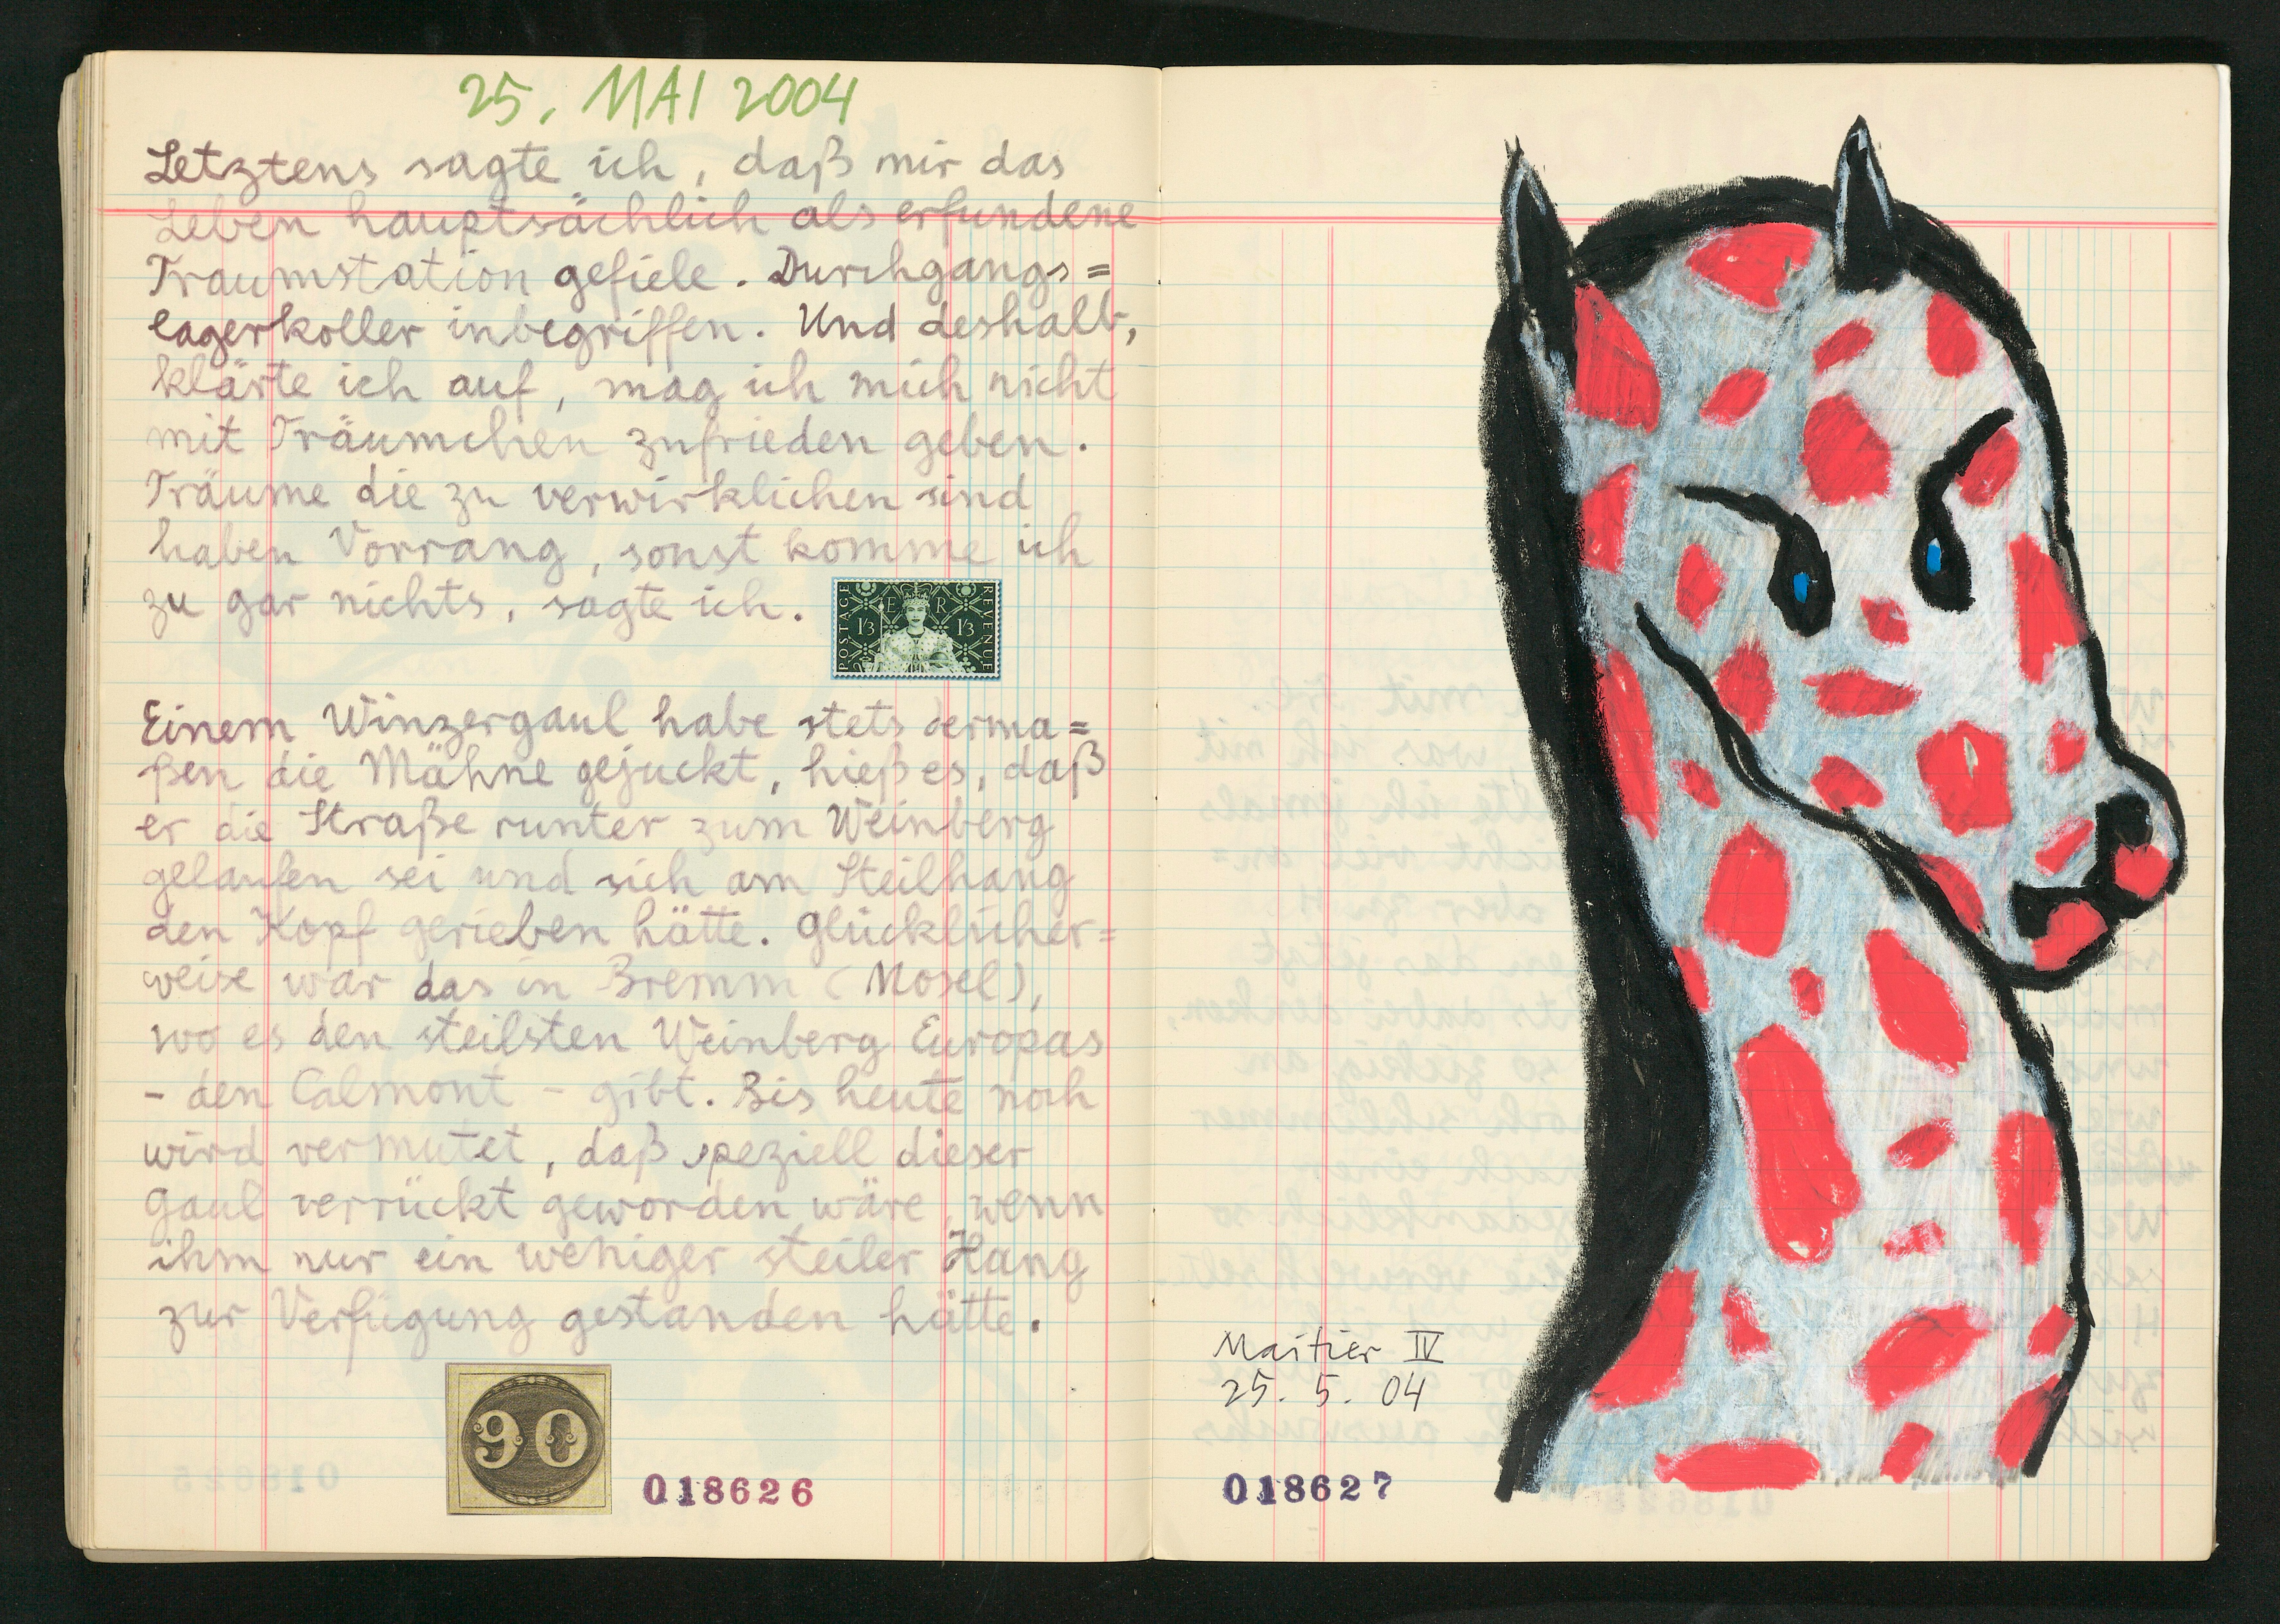 25. MAI 2004
Letztens sagte ich, daß mir das
Leben hauptsächlich als erfundene
Traumstation gefiele. Durchgangs=
lagerkoller inbegriffen. Und deshalb,
klärte ich auf, mag ich mich nicht
mit Träumchen zufrieden geben.
Träume die zu verwirklichen sind
haben Vorrang, sonst komme ich
zu gar nichts, sagte ich.
POSTAGE
E R
1/3 1/3
REVENUE
Einem Winzergaul habe stets derma=
ßen die Mähne gejuckt, hieß es, daß
er die Straße runter zum Weinberg
gelaufen sei und sich am Steilhang
den Kopf gerieben hätte. Glücklicher=
weise war das in Bremm (Mosel),
wo es den steilsten Weinberg Europas
- den Calmont - gibt. Bis heute noch
wird vermutet, daß speziell dieser
Gaul verrückt geworden wäre, wenn
ihm nur ein weniger steiler Hang
zur Verfügung gestanden hätte.
90
018626
Maitier IV
25. 5. 04
018627